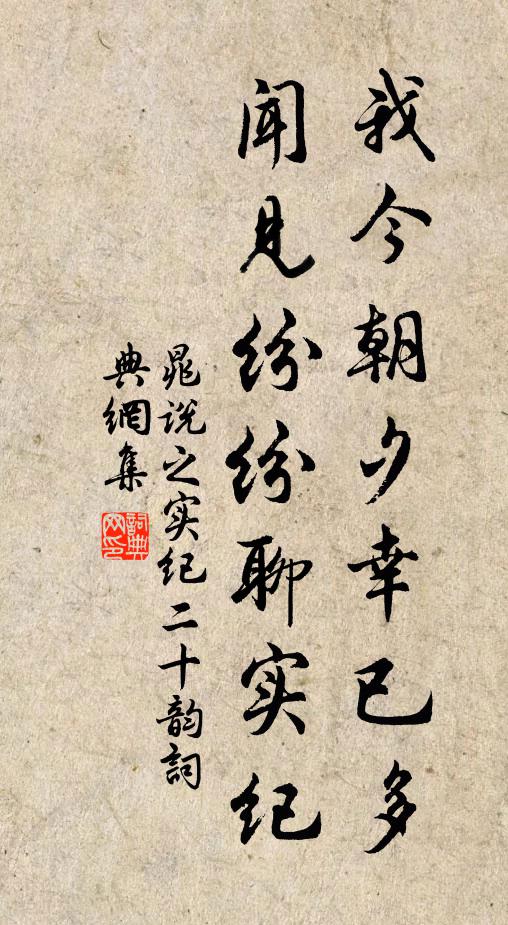 我今朝夕幸已多
闻见纷纷聊实纪
晁说之实纪二十韵詞
典網集
詞典网印